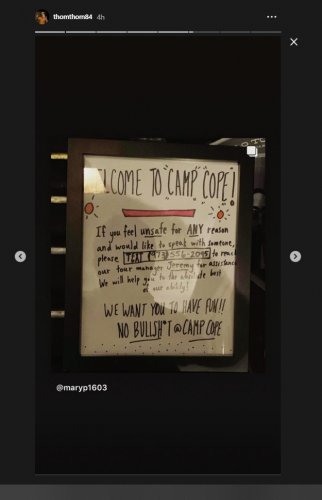 thomthom84 4h
LCOME TO CAMP COPE!
If you feel unsafe for ANY reason
and would like to speak with someone,
please TEXT (973) 556-2095 to reach
our tour manager Jeremy for assistance
We will help you to the absolute best
of our ability!
WE WANT YOU TO HAVE FUN!!
NO BULLSH*T @ CAMP COPE
@maryp1603